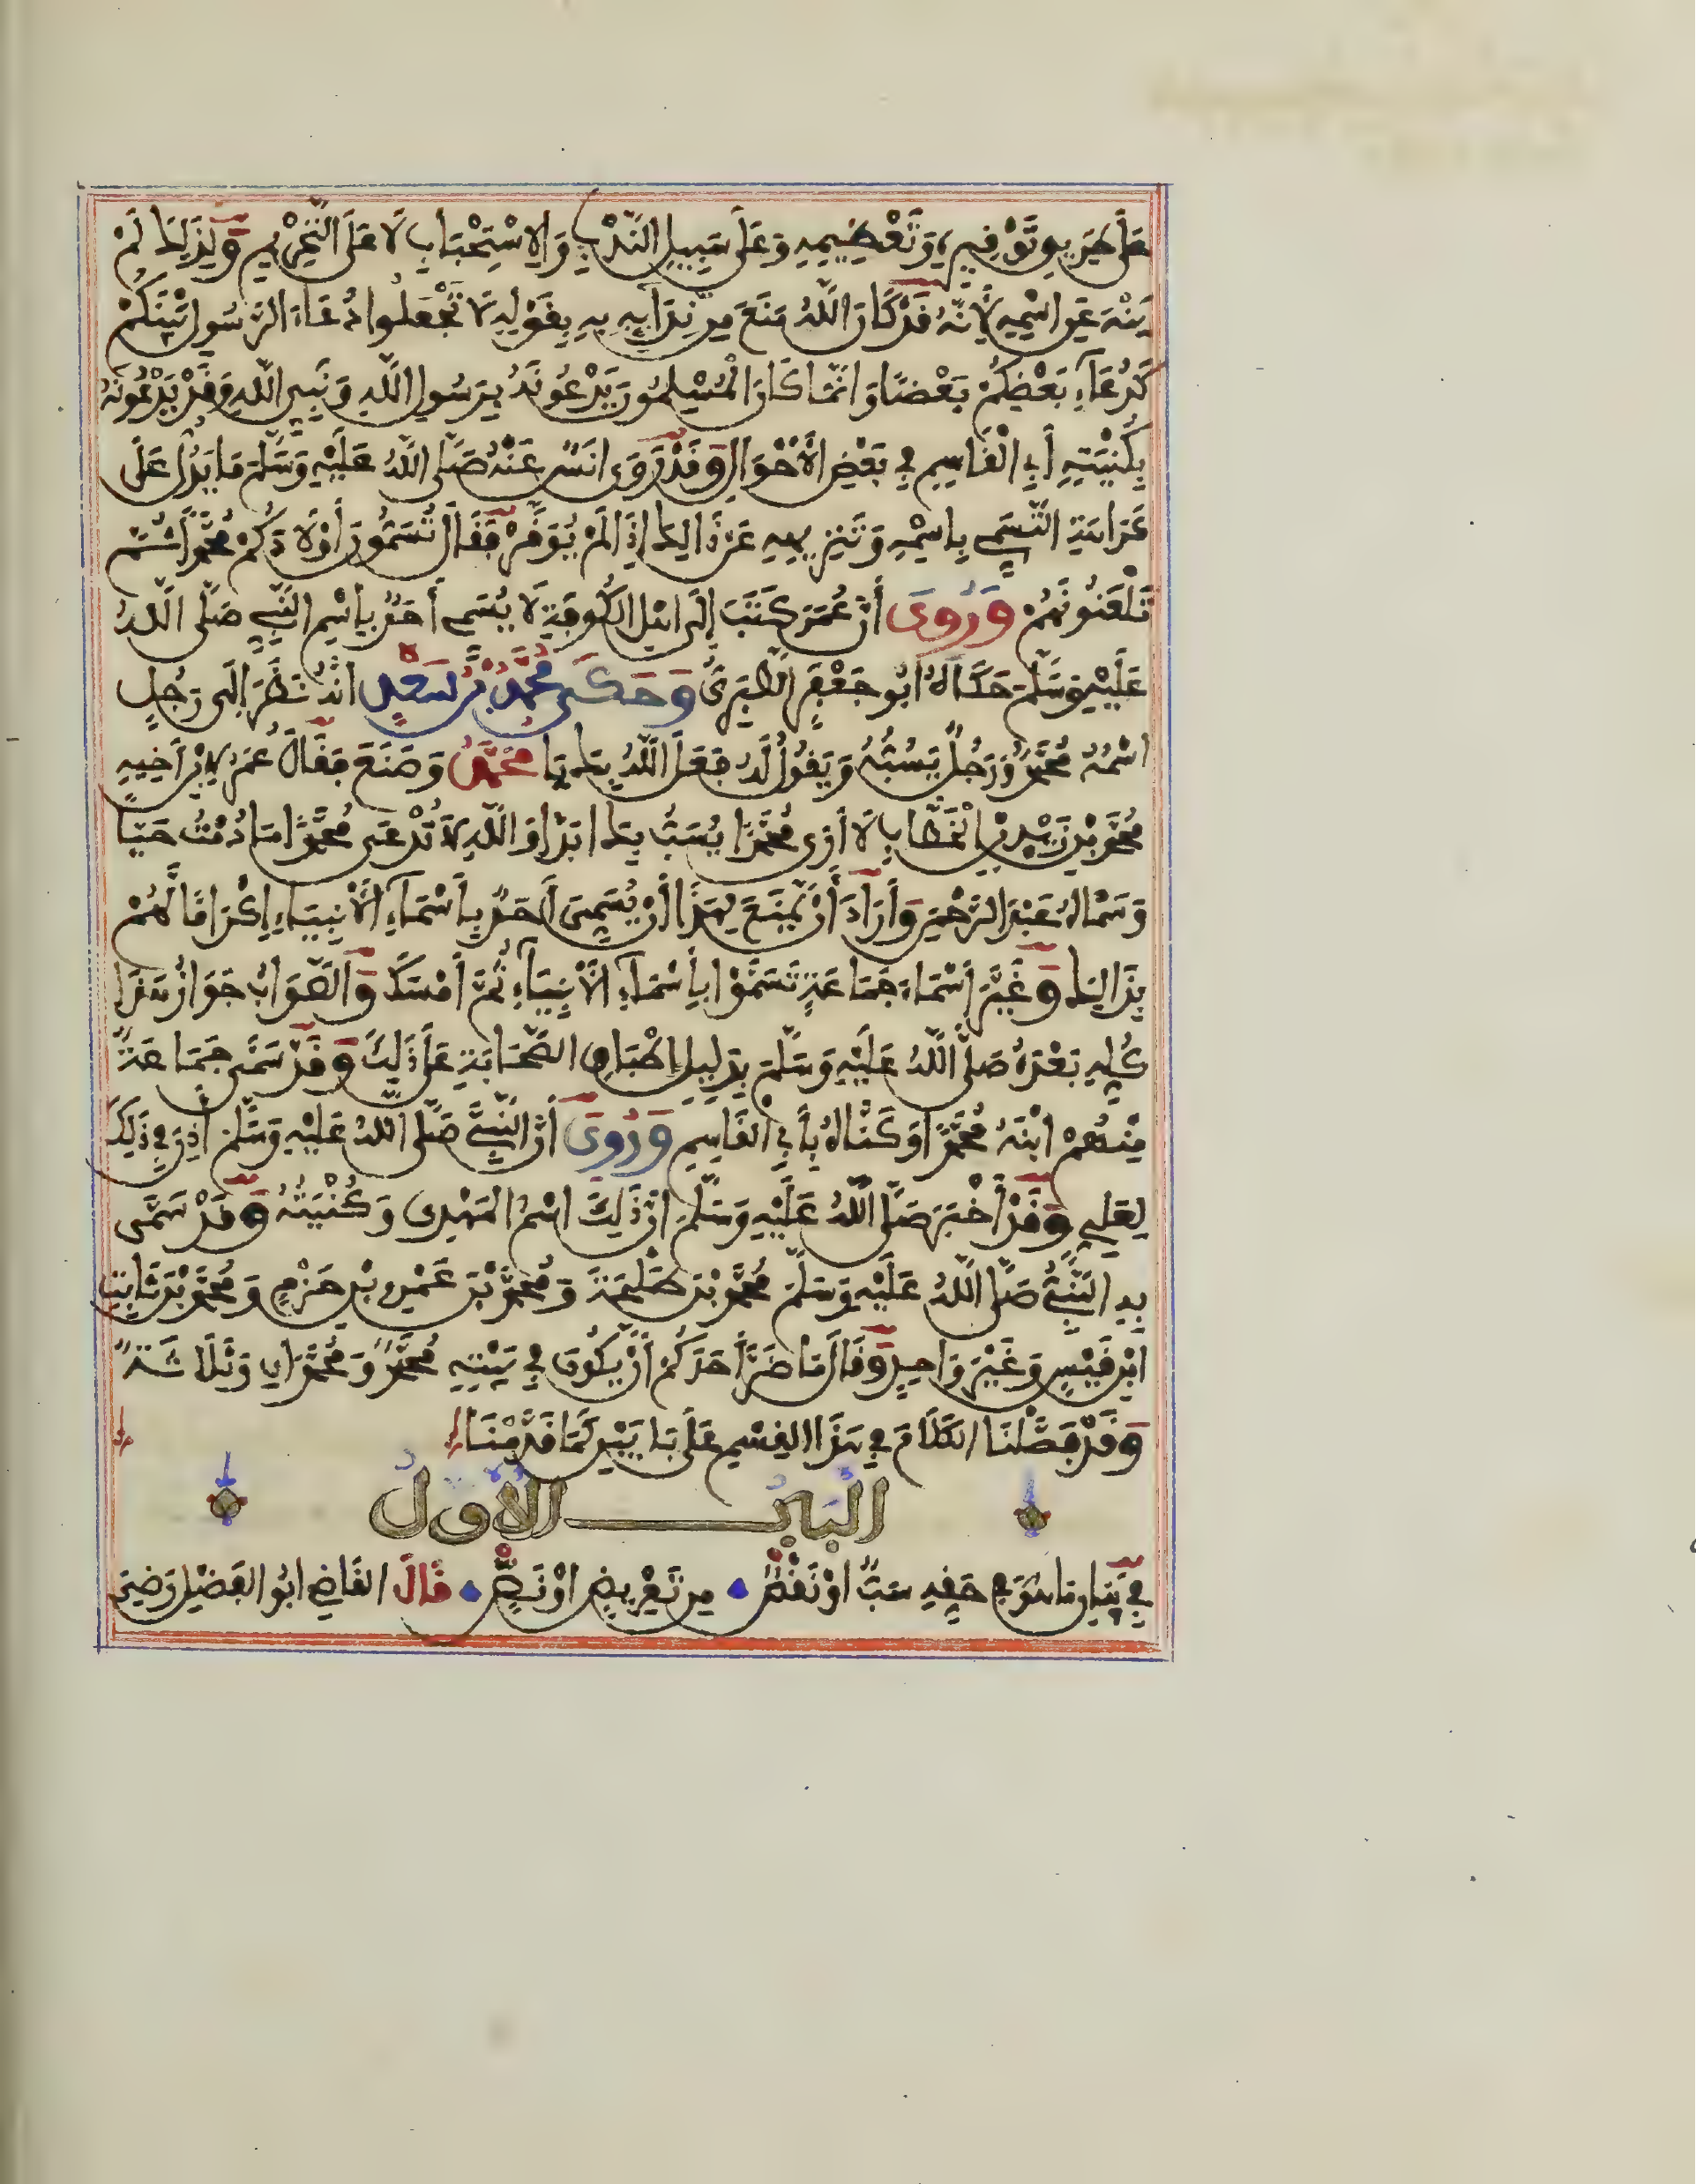 عَلَى طَرِيقِ تَوْقِيرِهِ وَتَعْظِيمِهِ وَعَلَى سَبِيلِ النَّدْبِ وَالِاسْتِحْبَابِ لَا عَلَى التَّحْرِيمِ وَلِذَلِكَ لَمْ
يَنْهَ عَنِ اسْمِهِ لِأَنَّهُ قَدْ كَانَ اللَّهُ مَنَعَ مِنْ نِدَائِهِ بِهِ بِقَوْلِهِ لَا تَجْعَلُوا دُعَاءَ الرَّسُولِ بَيْنَكُمْ
كَدُعَاءِ بَعْضِكُمْ بَعْضًا وَإِنَّمَا كَانَ الْمُسْلِمُونَ يَدْعُونَهُ بِرَسُولِ اللَّهِ وَنَبِيِّ اللَّهِ وَقَدْ يَدْعُونَهُ
بِكُنْيَتِهِ أَبِي الْقَاسِمِ فِي بَعْضِ الْأَحْوَالِ وَقَدْ رَوَى أَنَسٌ عَنْهُ صَلَّى اللَّهُ عَلَيْهِ وَسَلَّمَ مَا يَدُلُّ عَلَى
كَرَاهَةِ التَّسَمِّي بِاسْمِهِ وَتَنْزِيهِهِ عَنْ ذَلِكَ إِذَا لَمْ يُوَقَّرْ فَقَالَ تُسَمُّونَ أَوْلَادَكُمْ مُحَمَّدًا ثُمَّ
تَلْعَنُونَهُمْ وَرُوِيَ أَنَّ عُمَرَ كَتَبَ إِلَى أَهْلِ الْكُوفَةِ لَا يُسَمَّى أَحَدٌ بِاسْمِ النَّبِيِّ صَلَّى اللَّهُ
عَلَيْهِ وَسَلَّمَ حَكَاهُ أَبُو جَعْفَرٍ الطَّبَرِيُّ وَحَكَى مُحَمَّدُ بْنُ سَعْدٍ أَنَّهُ نَظَرَ إِلَى رَجُلٍ
اسْمُهُ مُحَمَّدٌ وَرَجُلٌ يَسُبُّهُ وَيَقُولُ لَهُ فَعَلَ اللَّهُ بِكَ يَا مُحَمَّدُ وَصَنَعَ فَقَالَ عُمَرُ لِابْنِ أَخِيهِ
مُحَمَّدِ بْنِ زَيْدِ بْنِ الْخَطَّابِ لَا أَرَى مُحَمَّدًا يُسَبُّ بِكَ أَبَدًا وَاللَّهِ لَا تُدْعَى مُحَمَّدًا مَا دُمْتُ حَيًّا
وَسَمَّاهُ عَبْدَ الرَّحْمَنِ وَأَرَادَ أَنْ يَمْنَعَ بِهَذَا أَنْ يُسَمَّى أَحَدٌ بِأَسْمَاءِ الْأَنْبِيَاءِ إِكْرَامًا لَهُمْ
بِذَلِكَ وَغَيَّرَ أَسْمَاءَ جَمَاعَةٍ تَسَمَّوْا بِأَسْمَاءِ الْأَنْبِيَاءِ ثُمَّ أَمْسَكَ وَالصَّوَابُ جَوَازُ هَذَا
كُلِّهِ بَعْدَهُ صَلَّى اللَّهُ عَلَيْهِ وَسَلَّمَ بِدَلِيلِ إِطْبَاقِ الصَّحَابَةِ عَلَى ذَلِكَ وَقَدْ سَمَّى جَمَاعَةٌ
مِنْهُمُ ابْنَهُ مُحَمَّدًا وَكَنَّاهُ بِأَبِي الْقَاسِمِ وَرُوِيَ أَنَّ النَّبِيَّ صَلَّى اللَّهُ عَلَيْهِ وَسَلَّمَ أَذِنَ فِي ذَلِكَ
لِعَلِيٍّ وَقَدْ أَخْبَرَ صَلَّى اللَّهُ عَلَيْهِ وَسَلَّمَ أَنَّ ذَلِكَ اسْمُ الْمَهْدِي وَكُنْيَتُهُ وَقَدْ سَمَّى
بِهِ النَّبِيُّ صَلَّى اللَّهُ عَلَيْهِ وَسَلَّمَ مُحَمَّدَ بْنَ طَلْحَةَ وَمُحَمَّدَ بْنَ عَمْرِو بْنِ حَزْمٍ وَمُحَمَّدَ بْنَ ثَابِتِ
ابْنِ قَيْسٍ وَغَيْرَ وَاحِدٍ وَقَالَ مَا ضَرَّ أَحَدَكُمْ أَنْ يَكُونَ فِي بَيْتِهِ مُحَمَّدٌ وَمُحَمَّدَانِ وَثَلَاثَةٌ
وَقَدْ فَصَّلْنَا الْكَلَامَ فِي هَذَا الْقِسْمِ عَلَى بَابَيْنِ كَمَا قَدَّمْنَا
الْبَابُ الْأَوَّلُ
فِي بَيَانِ مَا هُوَ فِي حَقِّهِ سَبٌّ أَوْ نَقْصٌ مِنْ تَعْرِيضٍ أَوْ نَصٍّ قَالَ الْقَاضِي أَبُو الْفَضْلِ رَضِيَ